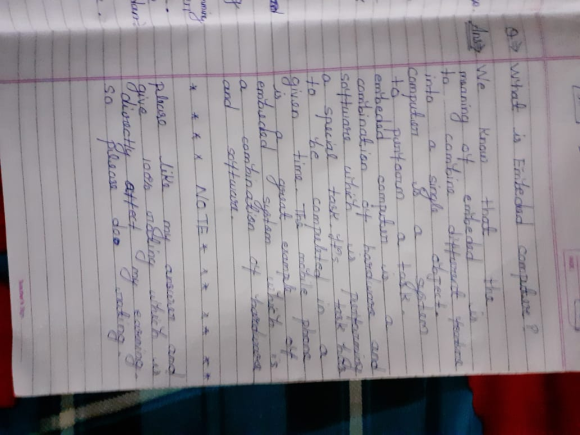 Q⇒ What is Embeded computer?
Ans⇒ We know that the
meaning of embeded is
to combine different
into a single object.
computer is a system
to purfoam a task.
embeded computer is a
combination of hardware and
software which is
a special task
to be completed in a
given time The mobile phone
is a great example of
embeded system which is
a combination of hardware
and software.
* * * * NOTE * * * * *
please like my answer and
give 100% rating which is
directly affect my earning.
So please do rating.